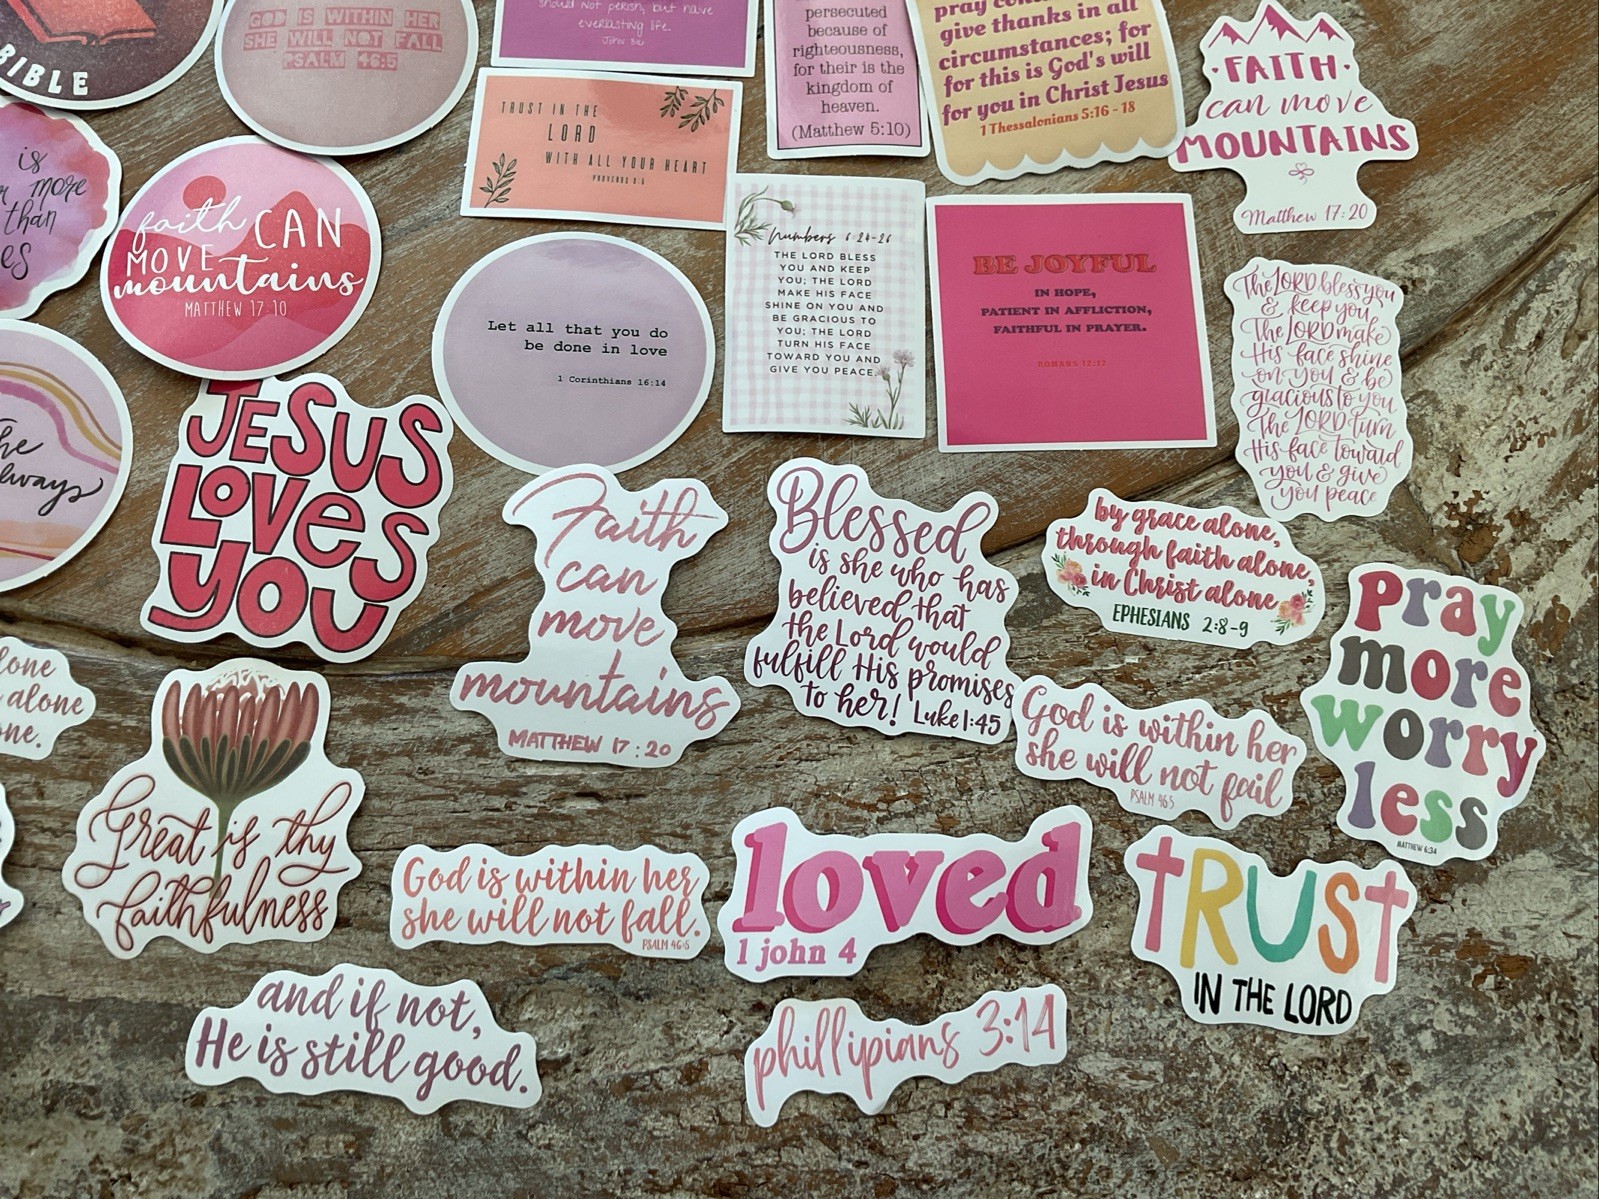 BIBLE
GOD IS WITHIN HER
SHE WILL NOT FALL
PSALM 46:5
should not perish, but have
everlasting life.
John 3:16
persecuted
because of
righteousness,
for their is the
kingdom of
heaven.
(Matthew 5:10)
give thanks in all
circumstances; for
for this is God's will
for you in Christ Jesus
1 Thessalonians 5:16 - 18
FAITH
can move
MOUNTAINS
Matthew 17:20
TRUST IN THE
LORD
WITH ALL YOUR HEART
PROVERBS 3:5
is
more
than
es
faith CAN
MOVE
mountains
MATTHEW 17:10
Let all that you do
be done in love
1 Corinthians 16:14
Numbers 6:24-26
THE LORD BLESS
YOU AND KEEP
YOU; THE LORD
MAKE HIS FACE
SHINE ON YOU AND
BE GRACIOUS TO
YOU; THE LORD
TURN HIS FACE
TOWARD YOU AND
GIVE YOU PEACE.
BE JOYFUL
IN HOPE,
PATIENT IN AFFLICTION,
FAITHFUL IN PRAYER.
ROMANS 12:12
The LORD bless you
& keep you,
The LORD make
His face shine
on you & be
gracious to you
The LORD turn
His face toward
you & give
you peace
he
lways
JESUS
LOVES
YOU
Faith
can
move
mountains
MATTHEW 17:20
Blessed
is she who has
believed that
the Lord would
fulfill His promises
to her! Luke 1:45
by grace alone,
through faith alone,
in Christ alone
EPHESIANS 2:8-9
pray
more
worry
less
MATTHEW 6:34
lone
alone
one.
God is within her
she will not fail
PSALM 46:5
Great is thy
faithfulness
God is within her
she will not fall.
PSALM 46:5
loved
1 john 4
tRUSt
IN THE LORD
and if not,
He is still good.
phillipians 3:14